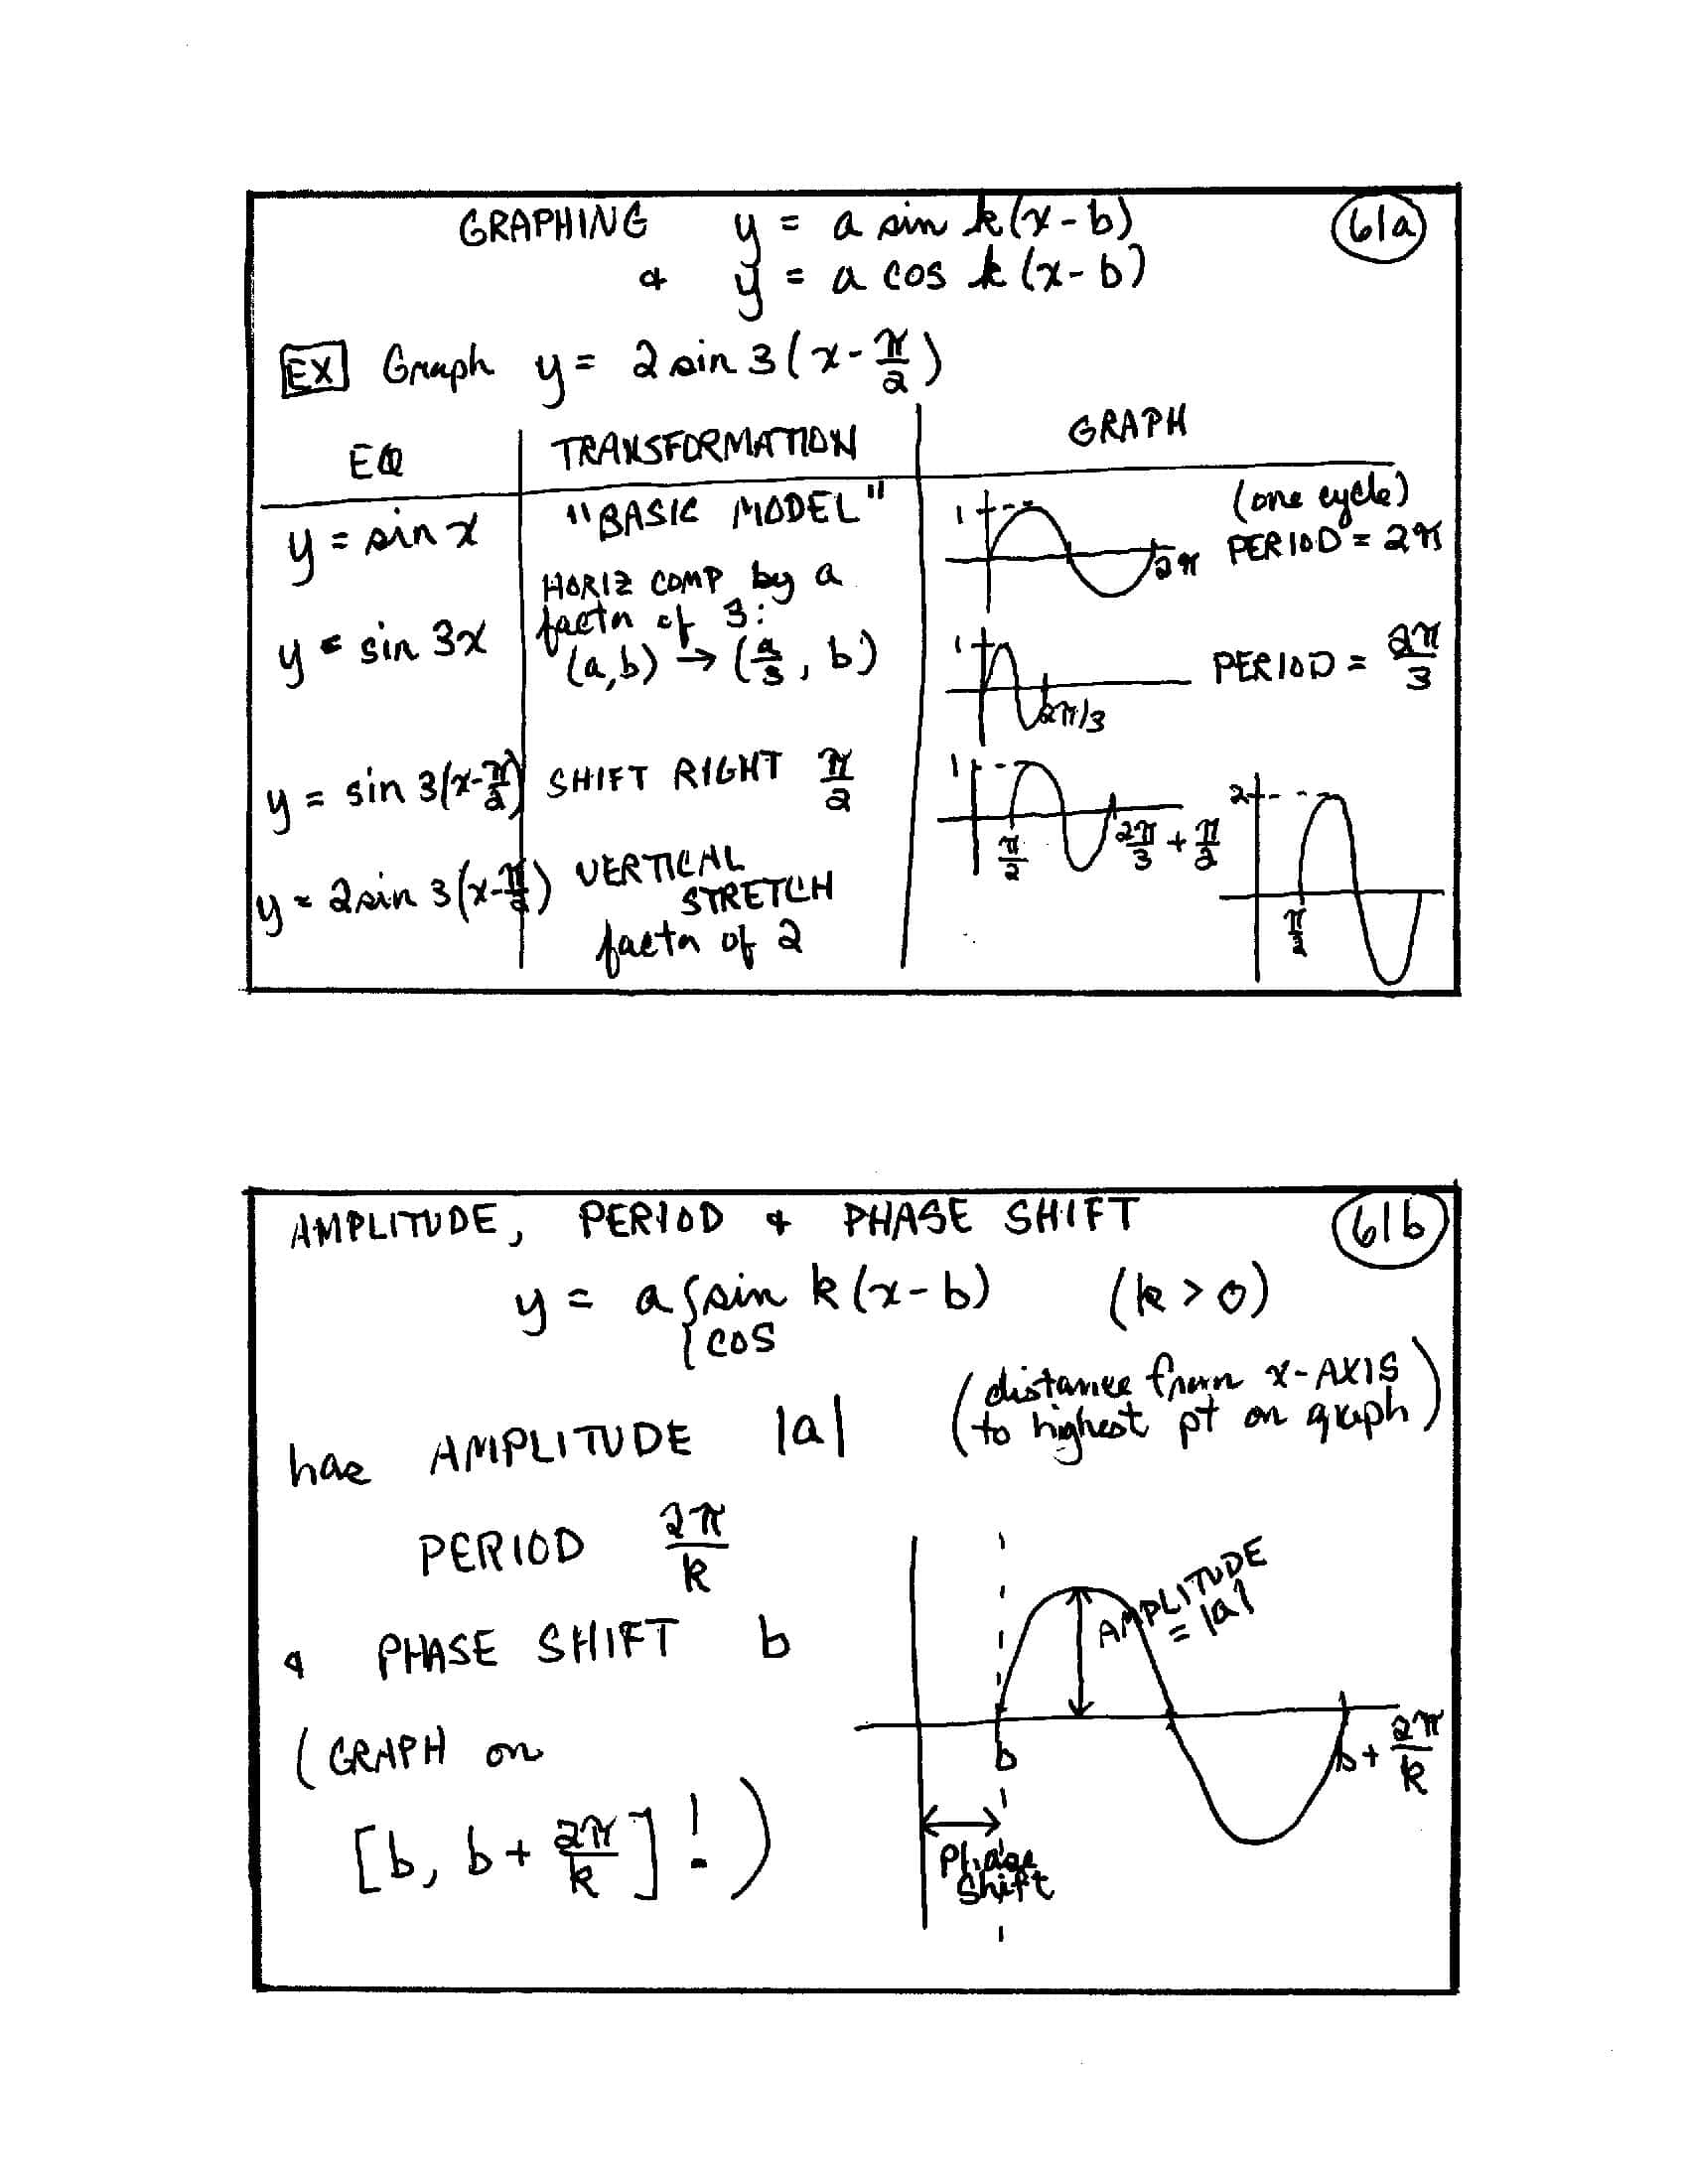 GRAPHING y = a sin k(x-b)
& y = a cos k(x-b)
61a
EX Graph y = 2 sin 3(x-π/2)
EQ TRANSFORMATION GRAPH
y = sin x "BASIC MODEL" 1 2π (one cycle)
PERIOD = 2π
y = sin 3x HORIZ COMP by a
factor of 3:
(a,b) → (a/3, b) 1 2π/3 PERIOD = 2π/3
y = sin 3(x-π/2) SHIFT RIGHT π/2 1 π/2 2π/3 + π/2
y = 2sin 3(x-π/2) VERTICAL
STRETCH
factor of 2 2 π/2
AMPLITUDE, PERIOD & PHASE SHIFT
61b
y = a {sin k(x-b) (k > 0)
{cos
has AMPLITUDE |a| (distance from x-AXIS
to highest pt on graph)
PERIOD 2π/k
& PHASE SHIFT b
(GRAPH on
[b, b + 2π/k] !)
AMPLITUDE
= |a|
b b + 2π/k
Phase
Shift